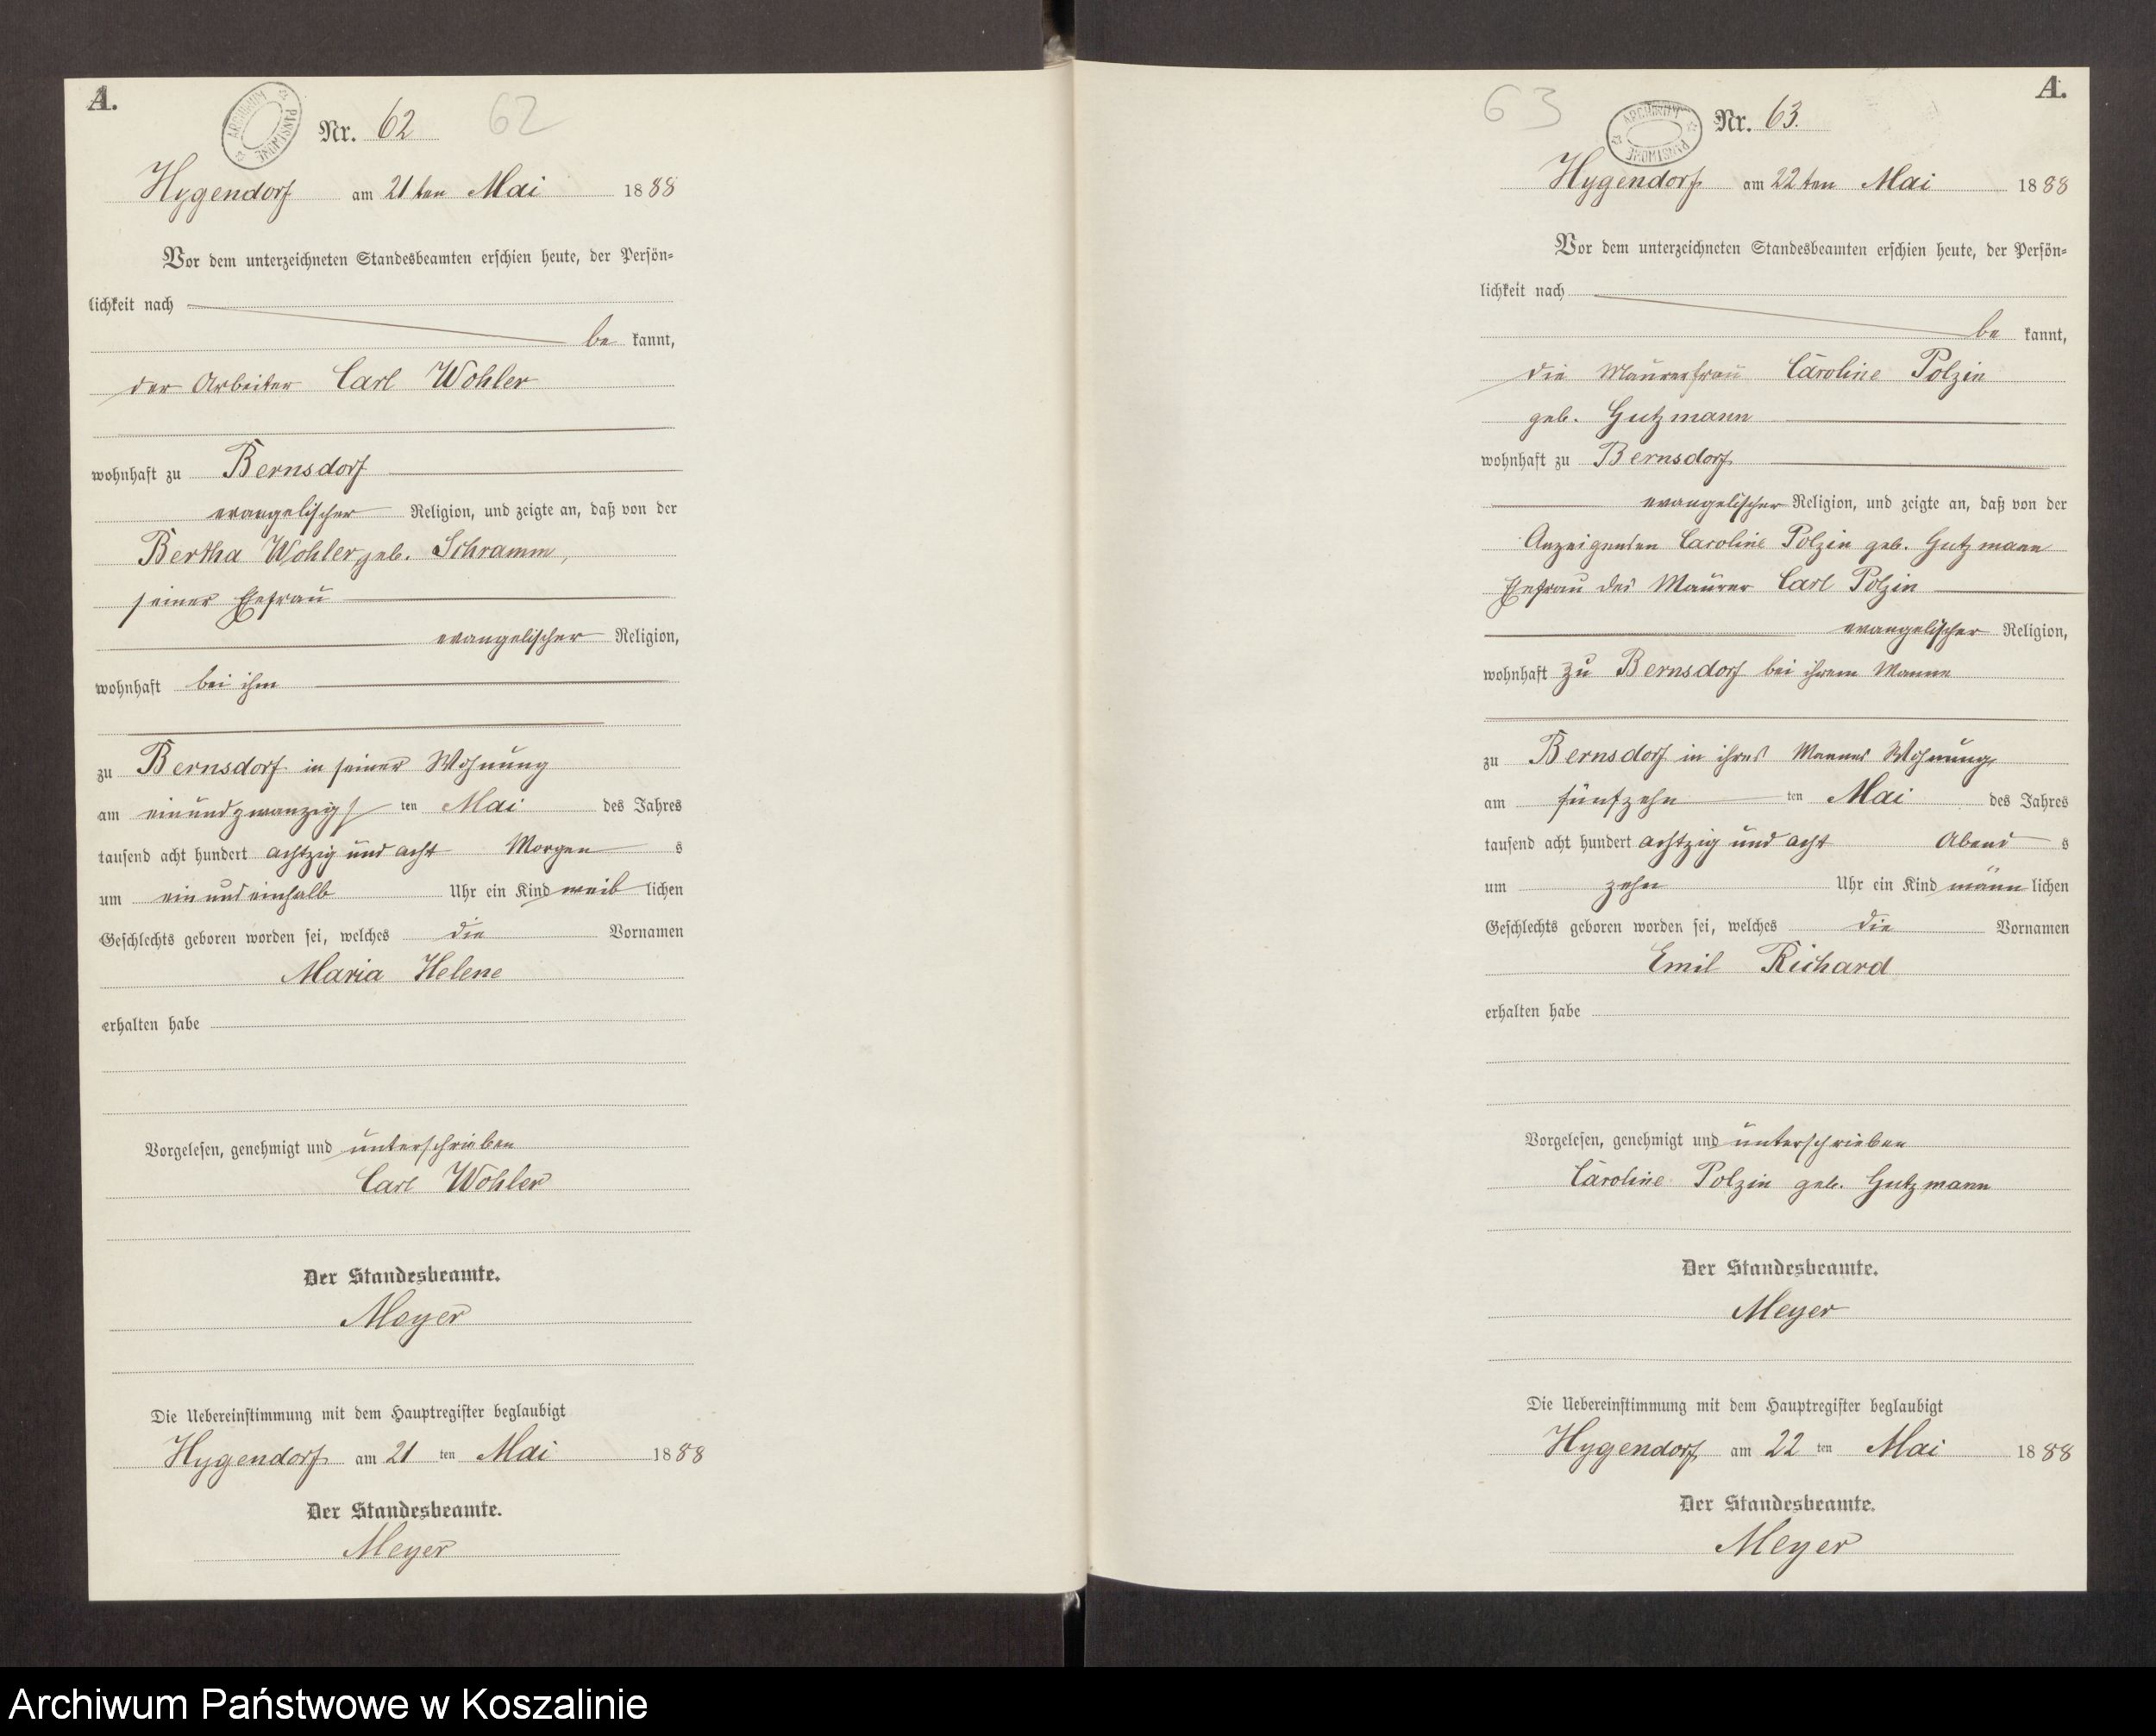 A.
ARCHIWUM PAŃSTWOWE
Nr. 62 62
Hygendorf am 21ten Mai 1888
Vor dem unterzeichneten Standesbeamten erschien heute, der Persön-
lichkeit nach
be kannt,
der Arbeiter Carl Wohler
wohnhaft zu Bernsdorf
evangelischer Religion, und zeigte an, daß von der
Bertha Wohler geb. Schramm,
seiner Ehefrau
evangelischer Religion,
wohnhaft bei ihm
zu Bernsdorf in seiner Wohnung
am einundzwanzigs ten Mai des Jahres
tausend acht hundert achtzig und acht Morgen s
um ein und einhalb Uhr ein Kind weib lichen
Geschlechts geboren worden sei, welches die Vornamen
Maria Helene
erhalten habe
Vorgelesen, genehmigt und unterschrieben
Carl Wohler
Der Standesbeamte.
Meyer
Die Uebereinstimmung mit dem Hauptregister beglaubigt
Hygendorf am 21 ten Mai 1888
Der Standesbeamte.
Meyer
A.
63
ARCHIWUM PAŃSTWOWE
Nr. 63.
Hygendorf am 22ten Mai 1888
Vor dem unterzeichneten Standesbeamten erschien heute, der Persön-
lichkeit nach
be kannt,
die Maurerfrau Caroline Polzin
geb. Gutzmann
wohnhaft zu Bernsdorf
evangelischer Religion, und zeigte an, daß von der
Anzeigenden Caroline Polzin geb. Gutzmann
Ehefrau des Maurer Carl Polzin
evangelischer Religion,
wohnhaft zu Bernsdorf bei ihrem Manne
zu Bernsdorf in ihres Mannes Wohnung
am fünfzehn ten Mai des Jahres
tausend acht hundert achtzig und acht Abend s
um zehn Uhr ein Kind männ lichen
Geschlechts geboren worden sei, welches die Vornamen
Emil Richard
erhalten habe
Vorgelesen, genehmigt und unterschrieben
Caroline Polzin geb. Gutzmann
Der Standesbeamte.
Meyer
Die Uebereinstimmung mit dem Hauptregister beglaubigt
Hygendorf am 22 ten Mai 1888
Der Standesbeamte.
Meyer
Archiwum Państwowe w Koszalinie